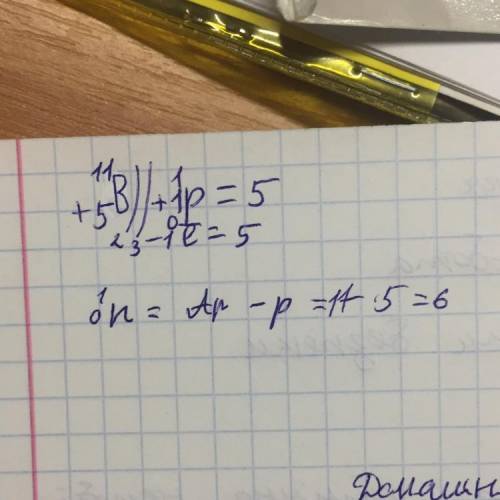 ¹¹₊₅B )) ₊₁¹p = 5
₂ ₃ ₋₁⁰e̅ = 5
₀¹n = Ar - p = 11 - 5 = 6
Домашн